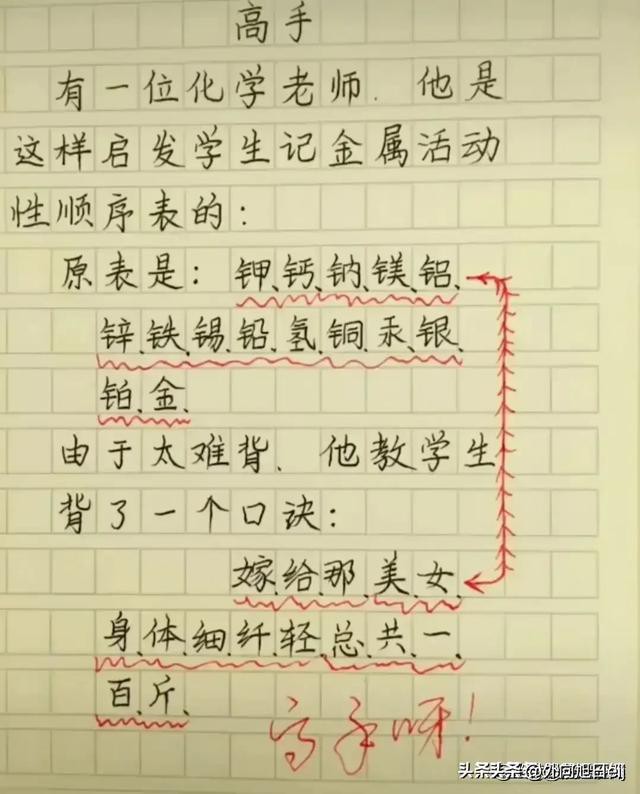 高手
有一位化学老师．他是
这样启发学生记金属活动
性顺序表的：
原表是：钾、钙、钠、镁、铝、
锌、铁、锡、铅、氢、铜、汞、银、
铂、金、
由于太难背、他教学生
背了一个口诀：
嫁、给、那、美、女、
身、体、细、纤、轻、总、共、一、
百、斤、
高手呀！